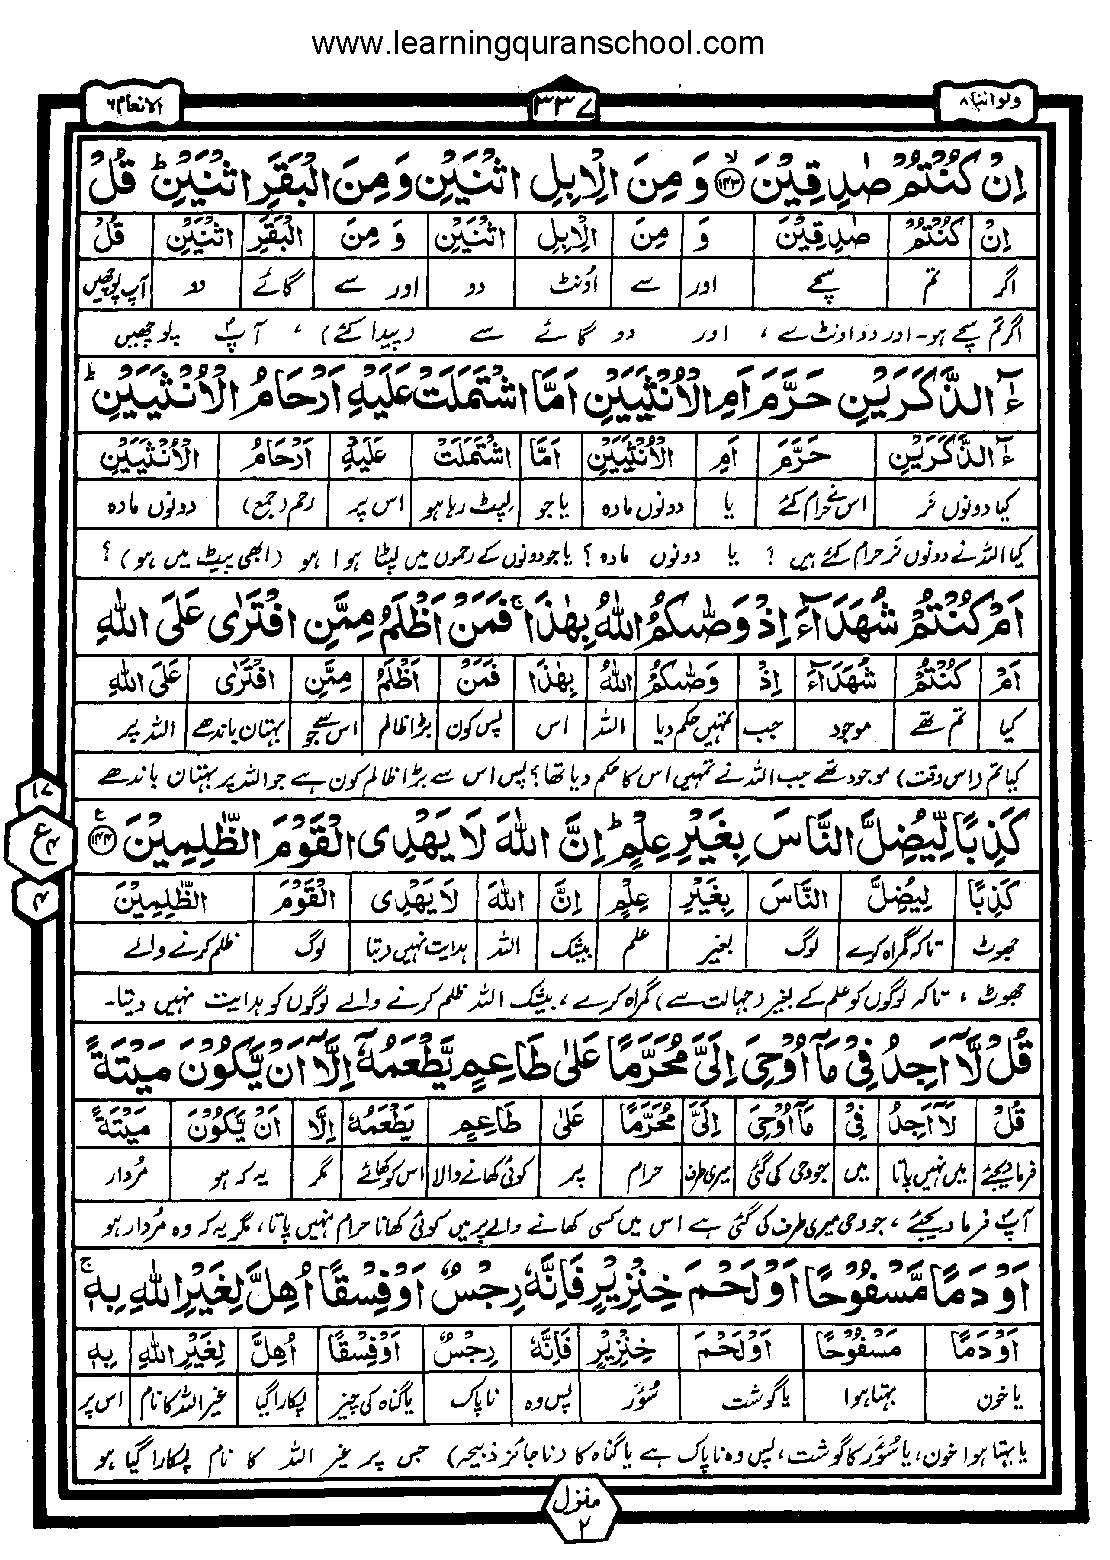 www.learningquranschool.com
ولواننا ٨ ٣٣٧ الانعام ٦
اِنْ كُنْتُمْ صٰدِقِيْنَ ﴿١٤٣﴾ۙ وَ مِنَ الْاِبِلِ اثْنَيْنِ وَ مِنَ الْبَقَرِ اثْنَيْنِ ؕ قُلْ
اِنْ كُنْتُمْ صٰدِقِيْنَ وَ مِنَ الْاِبِلِ اثْنَيْنِ وَ مِنَ الْبَقَرِ اثْنَيْنِ قُلْ
اگر تم سچے اور سے اونٹ دو اور سے گائے دو آپ پوچھیں
اگر تم سچے ہو۔ اور دو اونٹ سے ، اور دو گائے سے (پیدا کئے) ، آپ پوچھیں
ءٰٓالذَّكَرَيْنِ حَرَّمَ اَمِ الْاُنْثَيَيْنِ اَمَّا اشْتَمَلَتْ عَلَيْهِ اَرْحَامُ الْاُنْثَيَيْنِ ؕ
ءٰٓالذَّكَرَيْنِ حَرَّمَ اَمِ الْاُنْثَيَيْنِ اَمَّا اشْتَمَلَتْ عَلَيْهِ اَرْحَامُ الْاُنْثَيَيْنِ
کیا دونوں نر اس نے حرام کئے یا دونوں مادہ یا جو لپٹ رہا ہو اس پر رحم (جمع) دونوں مادہ
کیا اللہ نے دونوں نر حرام کئے ہیں ؟ یا دونوں مادہ ؟ یا جو دونوں کے رحموں میں لپٹا ہوا ہو (ابھی پیٹ میں ہو) ؟
اَمْ كُنْتُمْ شُهَدَآءَ اِذْ وَصّٰىكُمُ اللّٰهُ بِهٰذَا ۚ فَمَنْ اَظْلَمُ مِمَّنِ افْتَرٰى عَلَى اللّٰهِ
اَمْ كُنْتُمْ شُهَدَآءَ اِذْ وَصّٰىكُمُ اللّٰهُ بِهٰذَا فَمَنْ اَظْلَمُ مِمَّنِ افْتَرٰى عَلَى اللّٰهِ
کیا تم تھے موجود جب تمہیں حکم دیا اللہ اس پس کون بڑا ظالم اس سے جو بہتان باندھے اللہ پر
کیا تم (اس وقت) موجود تھے جب اللہ نے تمہیں اس کا حکم دیا تھا؟ پس اس سے بڑا ظالم کون ہے جو اللہ پر بہتان باندھے
كَذِبًا لِّيُضِلَّ النَّاسَ بِغَيْرِ عِلْمٍ ؕ اِنَّ اللّٰهَ لَا يَهْدِى الْقَوْمَ الظّٰلِمِيْنَ ﴿١٤٤﴾ع
١٧
ع ٤
٤
كَذِبًا لِيُضِلَّ النَّاسَ بِغَيْرِ عِلْمٍ اِنَّ اللّٰهَ لَا يَهْدِى الْقَوْمَ الظّٰلِمِيْنَ
جھوٹ تاکہ گمراہ کرے لوگ بغیر علم بیشک اللہ ہدایت نہیں دیتا لوگ ظلم کرنے والے
جھوٹ ، تاکہ لوگوں کو علم کے بغیر (جہالت سے) گمراہ کرے ، بیشک اللہ ظلم کرنے والے لوگوں کو ہدایت نہیں دیتا۔
قُلْ لَّآ اَجِدُ فِىْ مَآ اُوْحِىَ اِلَىَّ مُحَرَّمًا عَلٰى طَاعِمٍ يَّطْعَمُهٗٓ اِلَّآ اَنْ يَّكُوْنَ مَيْتَةً
قُلْ لَآ اَجِدُ فِىْ مَآ اُوْحِىَ اِلَىَّ مُحَرَّمًا عَلٰى طَاعِمٍ يَطْعَمُهٗ اِلَّآ اَنْ يَّكُوْنَ مَيْتَةً
فرما دیجئے میں نہیں پاتا میں جو وحی کی گئی میری طرف حرام پر کوئی کھانے والا اس کو کھائے مگر یہ کہ ہو مُردار
آپ فرما دیجئے ، جو وحی میری طرف کی گئی ہے اس میں کسی کھانے والے پر میں کوئی کھانا حرام نہیں پاتا ، مگر یہ کہ وہ مُردار ہو
اَوْ دَمًا مَّسْفُوْحًا اَوْ لَحْمَ خِنْزِيْرٍ فَاِنَّهٗ رِجْسٌ اَوْ فِسْقًا اُهِلَّ لِغَيْرِ اللّٰهِ بِهٖ ۚ
اَوْ دَمًا مَسْفُوْحًا اَوْ لَحْمَ خِنْزِيْرٍ فَاِنَّهٗ رِجْسٌ اَوْ فِسْقًا اُهِلَّ لِغَيْرِ اللّٰهِ بِهٖ
یا خون بہتا ہوا یا گوشت سُؤر پس وہ ناپاک یا گناہ کی چیز پکارا گیا غیر اللہ کا نام اس پر
یا بہتا ہوا خون، یا سُؤر کا گوشت، پس وہ ناپاک ہے یا گناہ کا (ناجائز ذبیحہ) جس پر غیر اللہ کا نام پکارا گیا ہو
منزل ٢